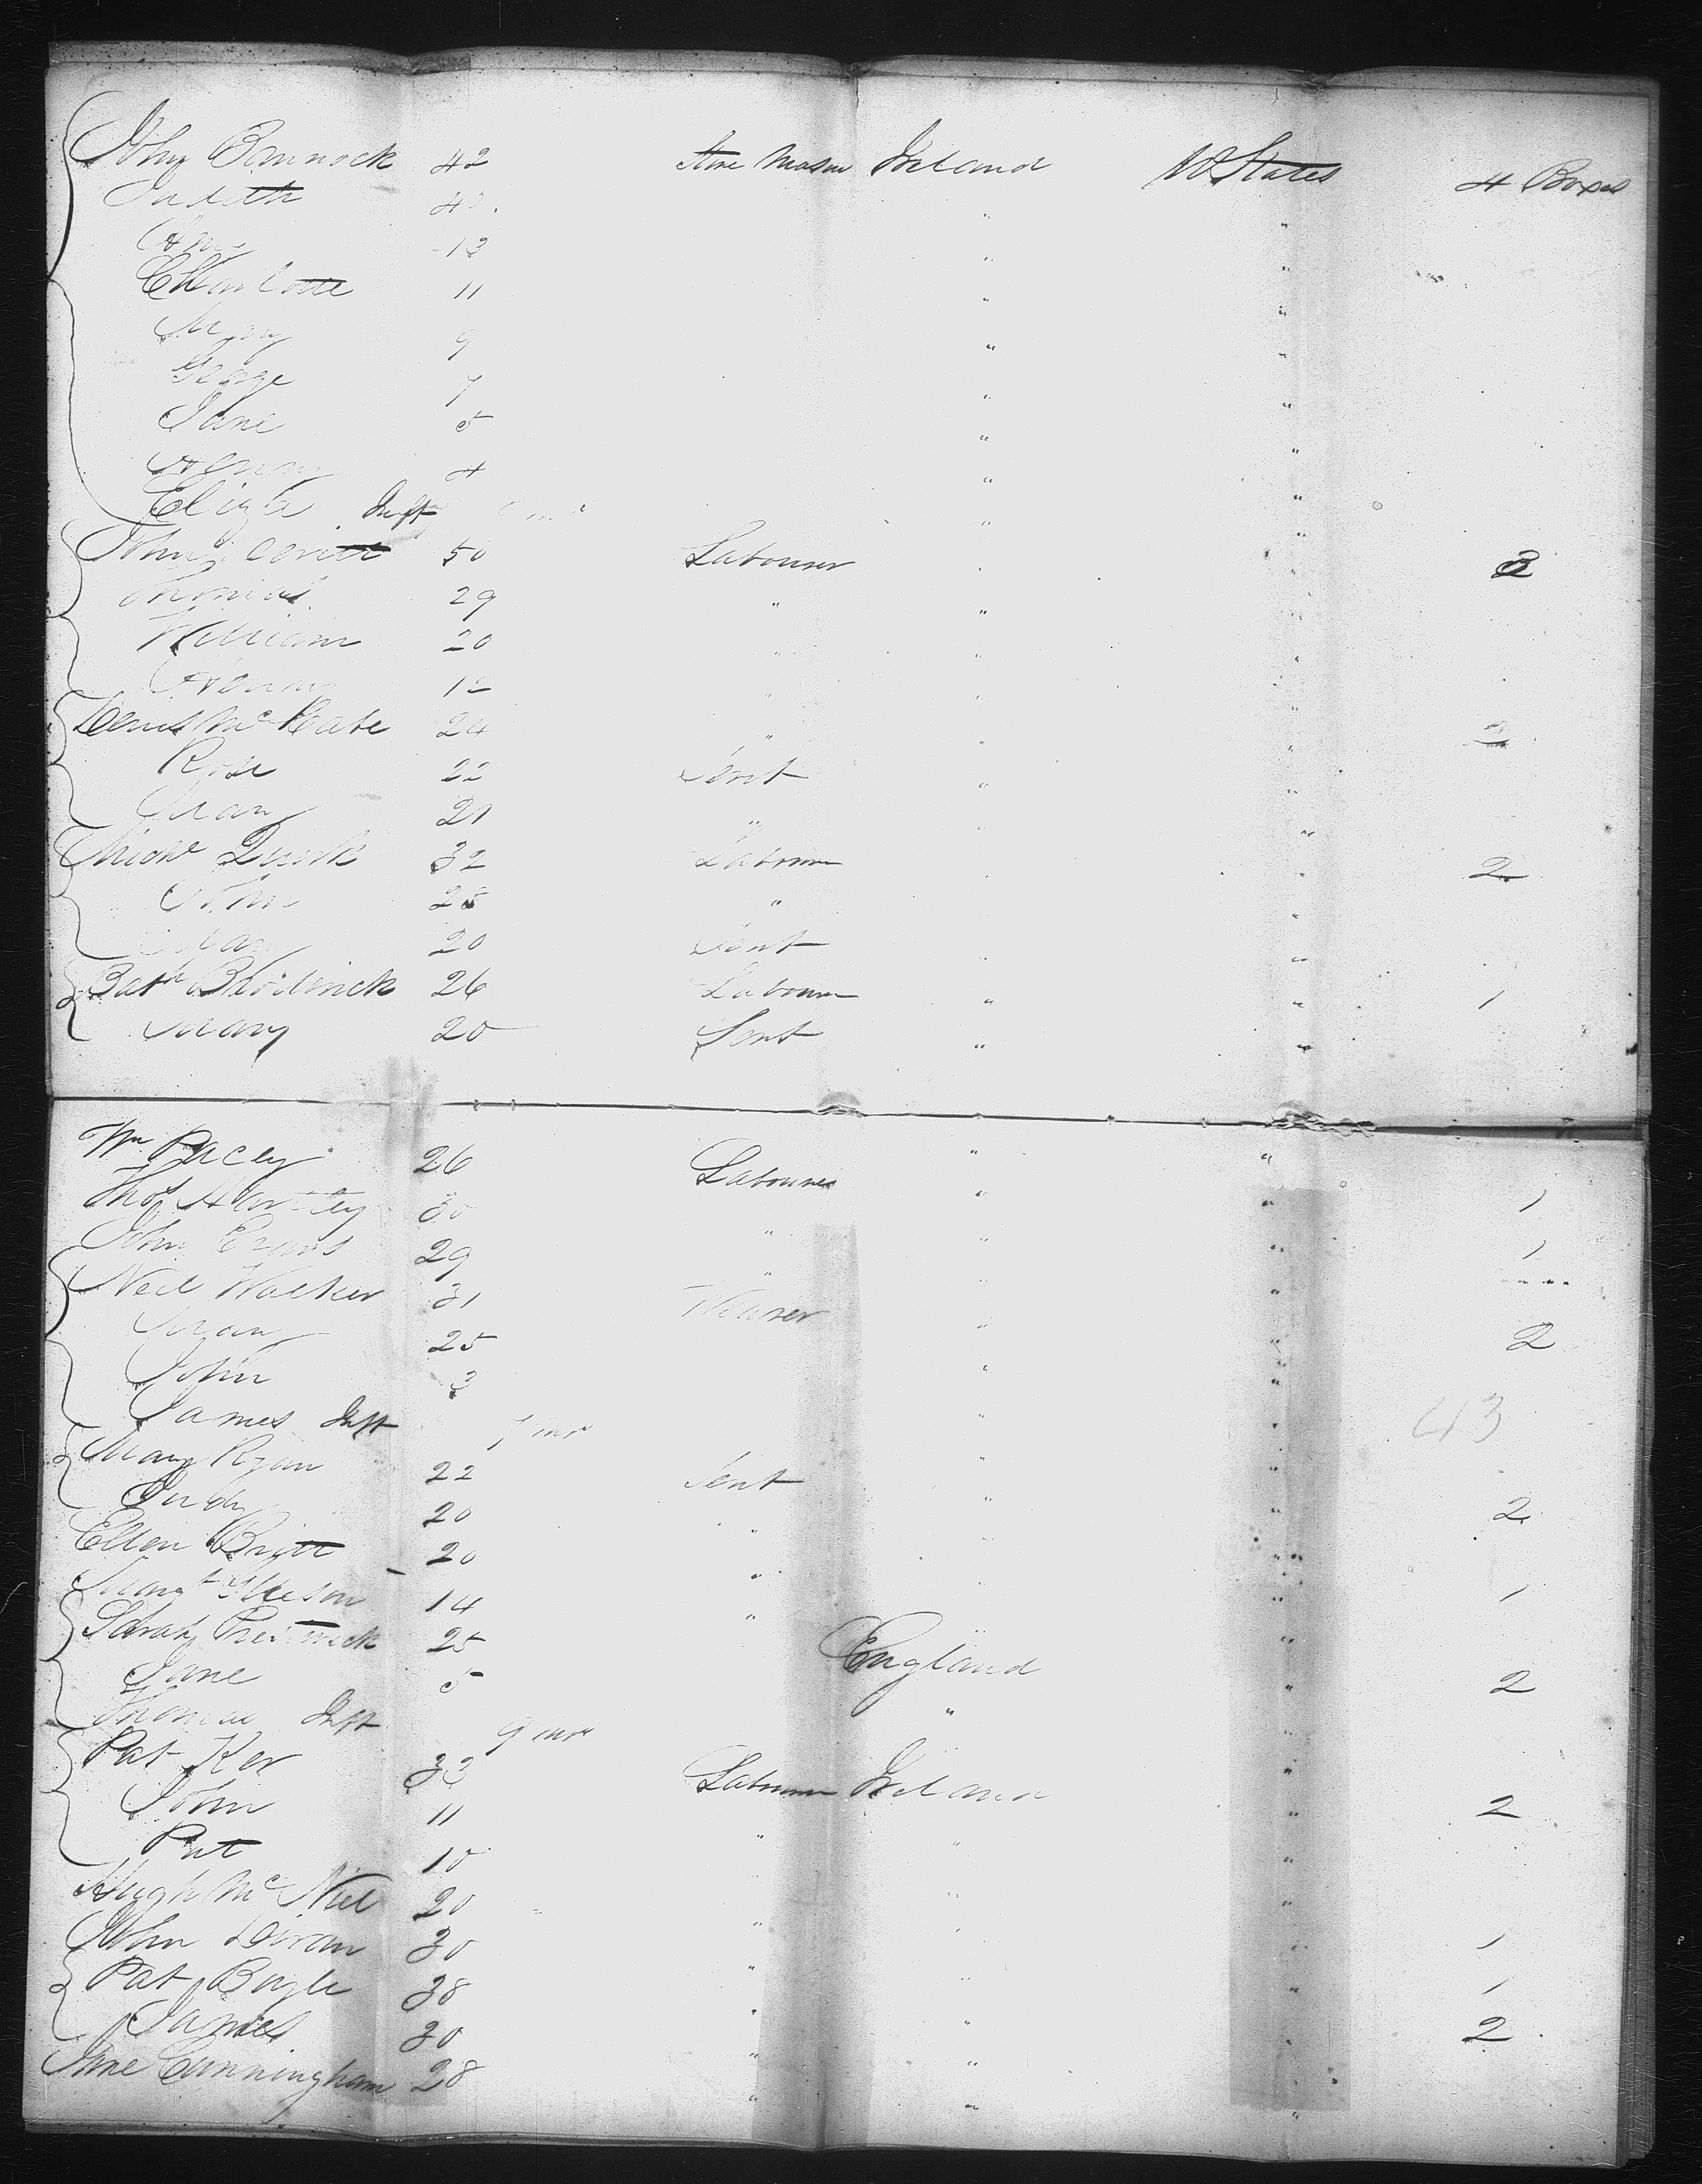 John Bannock 42 Stone Mason Ireland U States 4 Boxes
Judith 40 " "
Ann 13 " "
Charlotte 11 " "
Mary 9 " "
George 7 " "
Jane 5 " "
Henry 4 " "
Eliza Inft " "
John 50 Labourer " " 3
Thomas 29 " " "
William 20 " " "
Henry 12 " " "
Denis McCabe 24 " " "
Rose 22 Servt " "
Mary 21 " " "
Michl Quirk 32 Labourer " " 2
John 28 " " "
Mary 20 Servt " "
Bath Brodrick 26 Labourer " " 1
Mary 20 Servt " "
Wm Pacey 26 Labourer " " 1
Thos Hartley 30 " " " 1
John Evans 29 " " "
Neil Walker 31 Weaver " " 2
Mary 25 " "
John 3 " "
James Inft 7 mos " "
43
Mary Ryan 22 Servt " " 2
Judy 20 " " "
Ellen Britt 20 " " " 1
Margt Gleeson 14 " " "
Sarah 25 England " 2
Jane 5 " "
Thomas Inft 9 mos
Pat Ker 33 Labourer Ireland " 2
John 11 " " "
Pat 10 " " "
Hugh McNiel 20 " " " 1
John Doran 30 " " " 1
Pat Boyle 38 " " " 2
James 30 " " "
Jane Cunningham 28 " " "